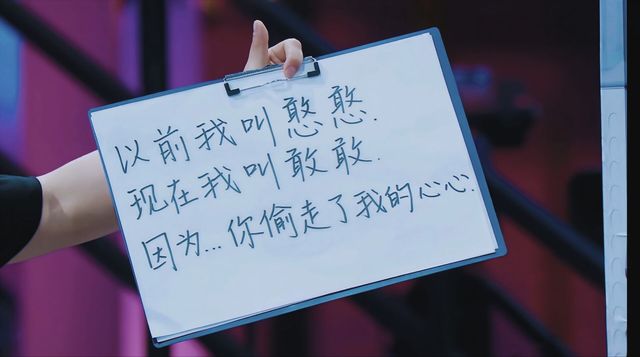 以前我叫憨憨.
现在我叫敢敢.
因为...你偷走了我的心心.